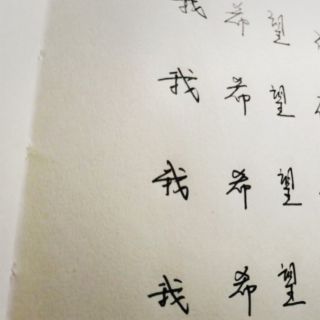 我希望
我希望
我希望
我希望